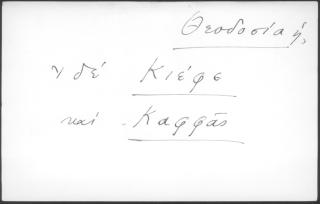 Θεοδοσία ἡ,
ν δέ Κιέφε
καί Καφφᾶς